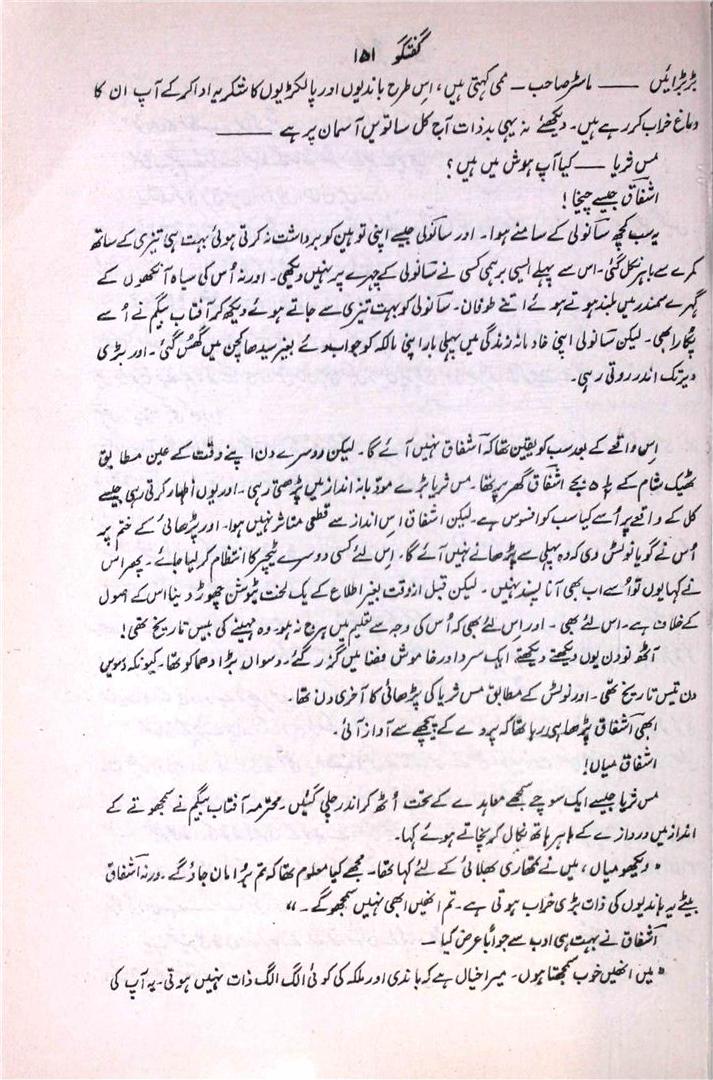 گفتگو ۱۵۱
بڑبڑائیں —— ماسٹر صاحب — ممی کہتی ہیں، اِس طرح باندیوں اور پالکڑیوں کا شکریہ ادا کر کے آپ ان کا
دماغ خراب کر رہے ہیں۔ دیکھئے نہ یہی بدذات آج کل ساتویں آسمان پر ہے ——
مس ثریا —— کیا آپ ہوش میں ہیں؟
اشفاق جیسے چیخا!
یہ سب کچھ سانولی کے سامنے ہوا۔ اور سانولی جیسے اپنی توہین کو برداشت نہ کرتی ہوئی بہت ہی تیزی کے ساتھ
کمرے سے باہر نکل گئی۔ اس سے پہلے ایسی برہمی کسی نے سانولی کے چہرے پر نہیں دیکھی۔ اور نہ اُس کی سیاہ آنکھوں کے
گہرے سمندر میں بلند ہوتے ہوئے اتنے طوفان۔ سانولی کو بہت تیزی سے جاتے ہوئے دیکھ کر آفتاب بیگم نے اُسے
پکارا بھی۔ لیکن سانولی اپنی خادمانہ زندگی میں پہلی بار اپنی مالکہ کو جواب دئے بغیر سیدھا کچن میں گھُس گئی۔ اور بڑی
دیر تک اندر روتی رہی۔
اِس واقعے کے بعد سب کو یقین تھا کہ اشفاق نہیں آئے گا۔ لیکن دوسرے دن اپنے وقت کے عین مطابق
ٹھیک شام کے ½۵ بجے اشفاق گھر پر تھا۔ مس ثریا بڑے مودبانہ انداز میں پڑھتی رہی۔ اور یوں اظہار کرتی رہی جیسے
کل کے واقعے پر اُسے کیا سب کو افسوس ہے۔ لیکن اشفاق اِس انداز سے قطعی متاثر نہیں ہوا۔ اور پڑھائی کے ختم پر
اُس نے گویا نوٹس دی کہ وہ پہلی سے پڑھانے نہیں آئے گا۔ اِس لئے کسی دوسرے ٹیچر کا انتظام کر لیا جائے۔ پھر اس
نے کہا یوں تو اُسے اب بھی آنا پسند نہیں۔ لیکن قبل از وقت بغیر اطلاع کے یک لخت ٹیوشن چھوڑ دینا اس کے اصول
کے خلاف ہے۔ اس لئے بھی۔ اور اِس لئے بھی کہ اُس کی وجہ سے تعلیم میں ہرج نہ ہو۔ وہ مہینے کی بیس تاریخ تھی!
آٹھ نو دن یوں دیکھتے دیکھتے ایک سرد اور خاموش فضا میں گزر گئے۔ دسواں بڑا دھماکو تھا۔ کیونکہ دسویں
دن تیس تاریخ تھی۔ اور نوٹس کے مطابق مس ثریا کی پڑھائی کا آخری دن تھا۔
ابھی اشفاق پڑھا ہی رہا تھا کہ پردے کے پیچھے سے آواز آئی۔
اشفاق میاں!
مس ثریا جیسے ایک سوچے سمجھے معاہدے کے تحت اُٹھ کر اندر چلی گئیں۔ محترمہ آفتاب بیگم نے سمجھوتے کے
انداز میں دروازے کے باہر ہاتھ نکال کر نچاتے ہوئے کہا۔
”دیکھو میاں، میں نے تمھاری بھلائی کے لئے کہا تھا۔ مجھے کیا معلوم تھا کہ تم بُرا مان جاؤ گے۔ ورنہ اشفاق
بیٹے یہ باندیوں کی ذات بڑی خراب ہوتی ہے۔ تم انھیں ابھی نہیں سمجھو گے۔“
اشفاق نے بہت ہی ادب سے جواباً عرض کیا —
”میں انھیں خوب سمجھتا ہوں۔ میرا خیال ہے کہ باندی اور ملکہ کی کوئی الگ الگ ذات نہیں ہوتی۔ یہ آپ کی